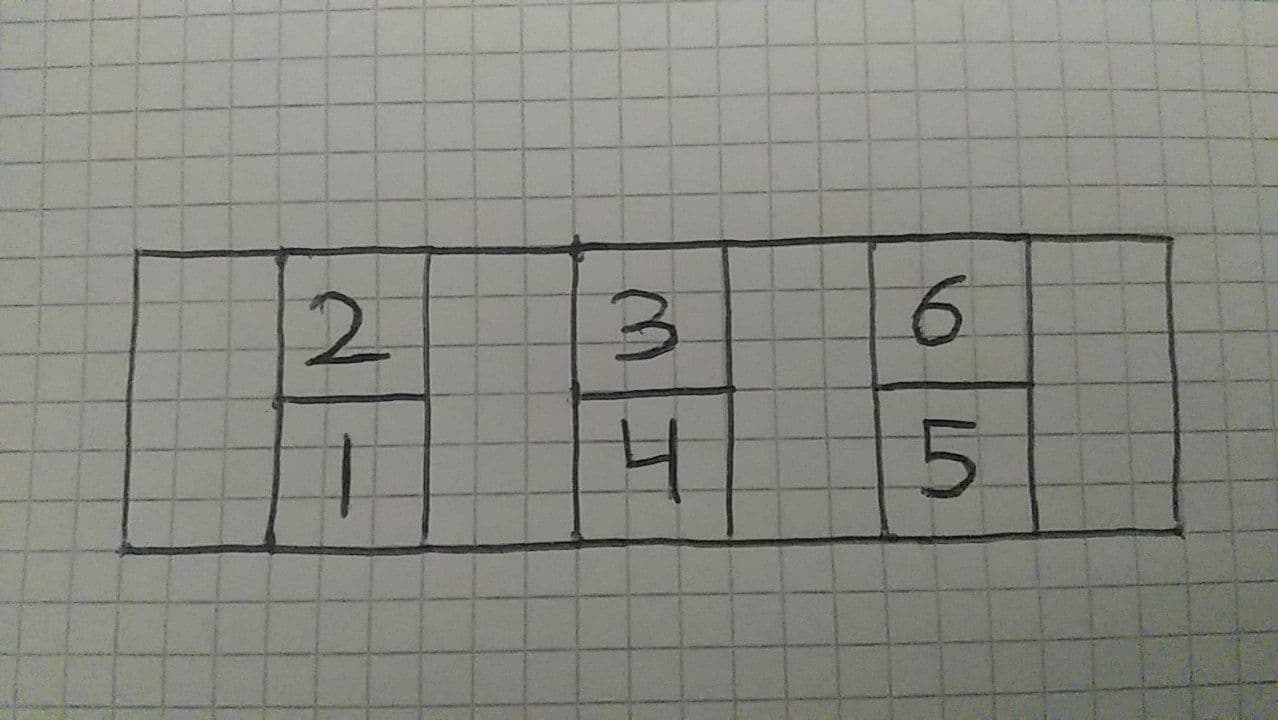 2 3 6
1 4 5